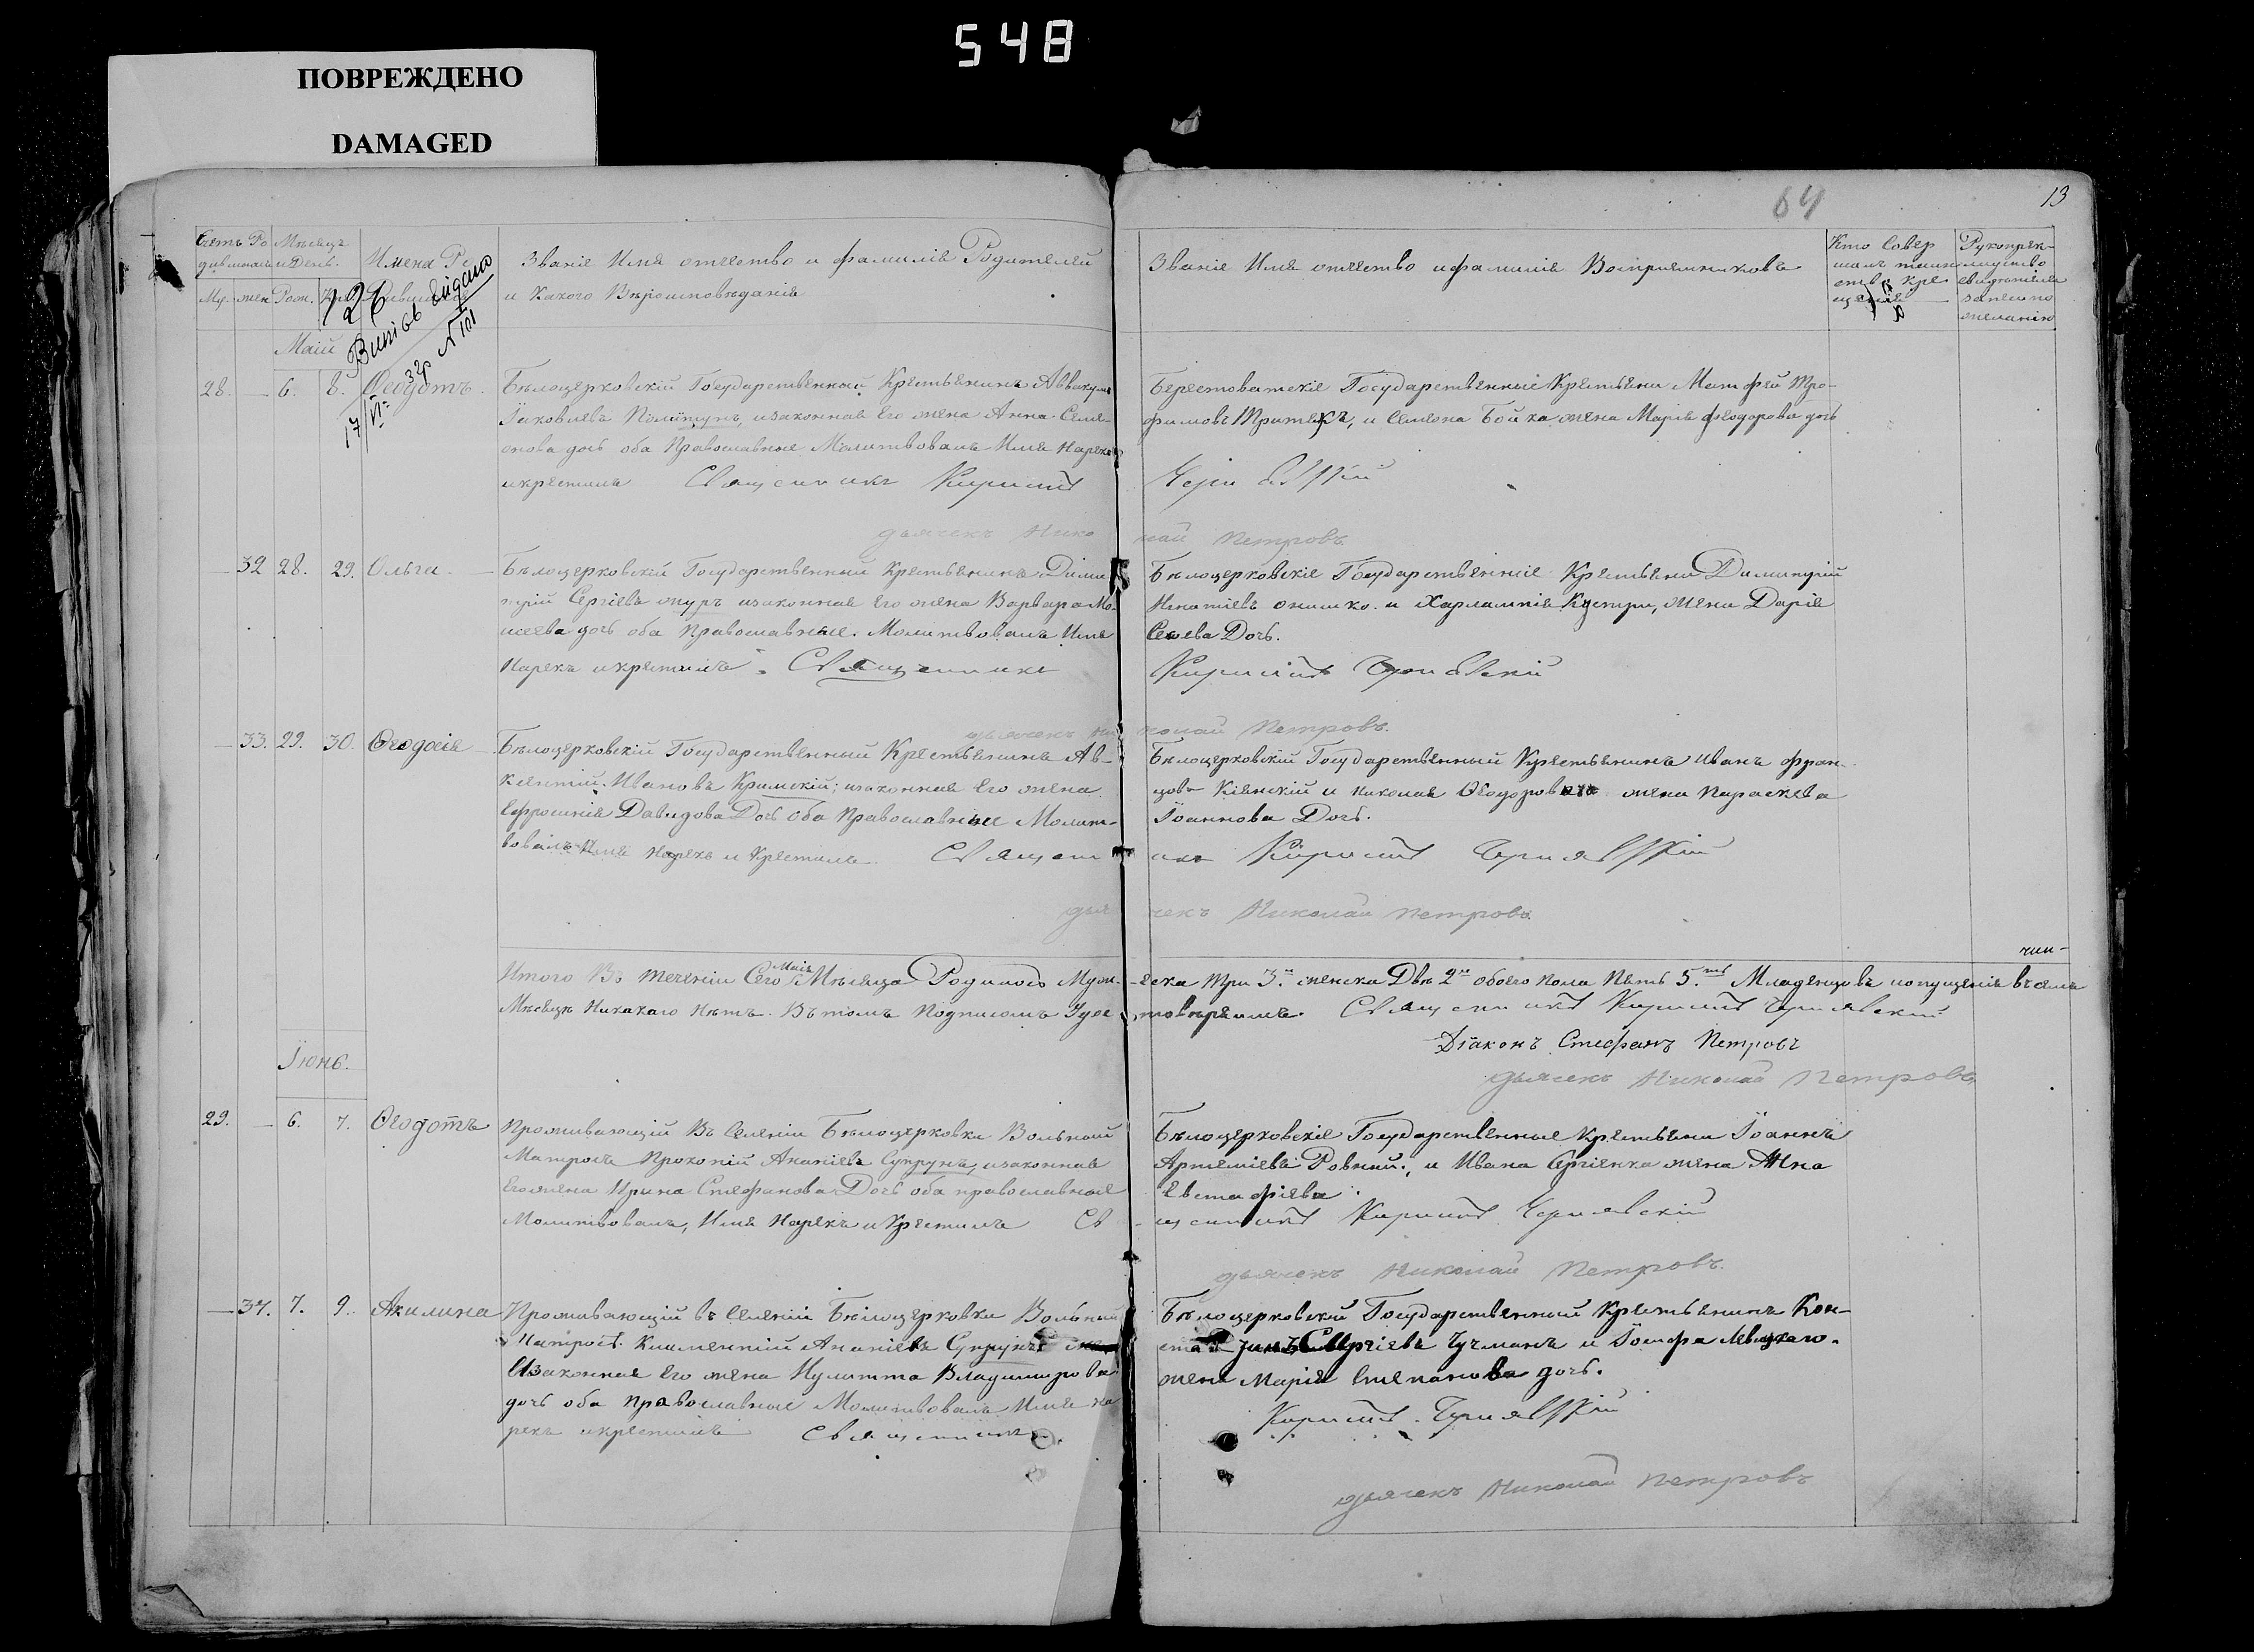 548
ПОВРЕЖДЕНО
DAMAGED
64
13
Мѣсяцъ
и День.
Имена
Званіе Имя отчество и фамилія Родителей
и Какого Вѣроисповѣданія
Му. жен Рож. Кре.
126
Витяг видано
№ 101
Маій
Званіе Имя отчество и фамилія Воспріемниковъ
Кто Совер
шалъ таин
ство кре
щенія
Рукоприк-
ладство
свидѣтелей
записи по
желанію
28. 6. 8. Ѳеодотъ.
Бѣлоцерковскій Государственный Крестьянинъ Аввакумъ
Іаковлевъ изаконная его жена Анна Семе-
онова дочь оба Православные Молитвовалъ Имя Нарекъ
икрестилъ Священникъ Кирилъ
дьячекъ Нико
Берестоватскіе Государственные Крестьяни Матфей Тро-
фимовъ и Семена Бойка жена Марія Феодорова дочь
Чернявскій
лай Петровъ
32 28. 29. Ольга
Бѣлоцерковскій Государственный Крестьянинъ Дими
трій Сергіевъ изаконная его жена Варвара Мо-
исеева дочь оба православные. Молитвовалъ Имя
Нарекъ икрестилъ. Священникъ
дьячекъ Ни
Бѣлоцерковскіе Государственніе Крестьяни Димитрій
Игнатіевъ онишко. и Харлампія жена Дарія
Дочь.
Кирилъ Чернявскій
колай Петровъ.
33. 29. 30. Ѳеодосія
Бѣлоцерковскій Государственный Крестьянинъ Ав-
ксентій Ивановъ Кримскій; изаконная Его жена
Ефросинія Давидова Дочь оба Православные Молит-
вовалъ Имя Нарекъ и Крестилъ Священ
дья
Бѣлоцерковскій Государственный Крестьянинъ Иванъ фран-
цовъ Кіенскій и Николая жена Параскева
Іоаннова Дочь.
икъ Кирилъ Чернявскій
чекъ Николай Петровъ.
Итого Въ теченіи Сего Маія Мѣсяца Родилось Муж-
Мѣсяцъ Никакого Нѣтъ. Въ томъ Подписомъ Удос
ческа Три 3. женска Двѣ 2 обоего пола Пять 5. Младенцовъ
товѣряимъ. Священникъ Кирилъ Чернявскій
Діаконъ Стефанъ Петровъ
дьячекъ Николай Петровъ
Іюнь.
29. 6. 7. Ѳеодотъ
Проживающій Въ Селеніи Бѣлоцерковки Вольный
Матросъ Прокопій Ананіевъ Супрунъ, изаконная
Его жена Ирина Стефанова Дочь оба православные
Молитвовалъ, Имя Нарекъ и Крестилъ Свя
Бѣлоцерковскіе Государственные Крестьяни Іоаннъ
Артеміевъ Ровный, и Ивана Сергіенка жена Анна
Евстафіева
щенникъ Кирилъ Чернявскій
дьячекъ Николай Петровъ.
34. 7. 9. Акилина
Проживающій въ Селеніи Бѣлоцерковки Вольный
Матросъ. Климентій Ананіевъ Супрунъ
Изаконная его жена Иулитта Владимирова
дочь оба православные Молитвовалъ Имя На
рекъ икрестилъ Священникъ
Бѣлоцерковскій Государственный Крестьянинъ Кон-
Сергіевъ Чучманъ и Іосифа Левицкаго.
жена Марія Степанова дочь.
Кирилъ Чернявскій
дьячекъ Николай Петровъ